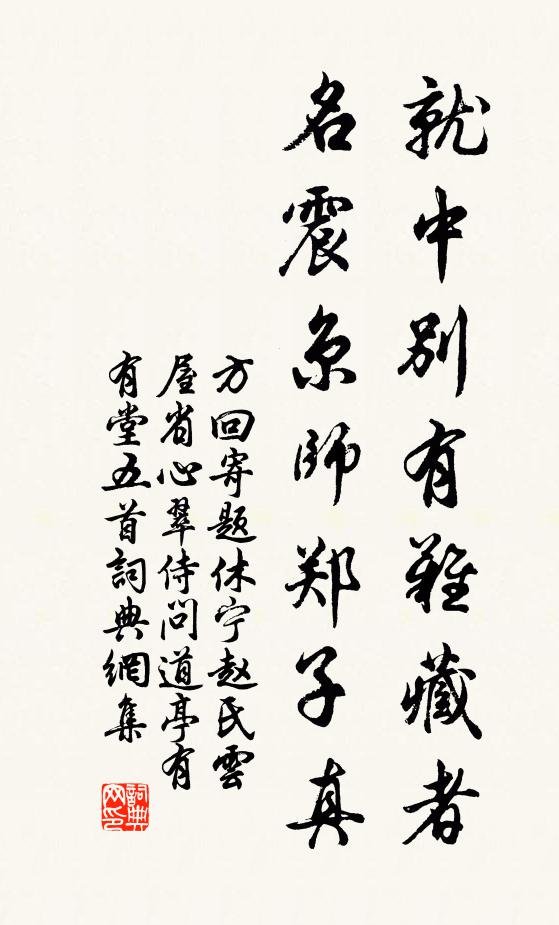 就中别有難藏者
名震京師郑子真
方回寄題休宁赵氏雲
屋省心翠侍問道亭有
有堂五首詞典網集
詞典
网印